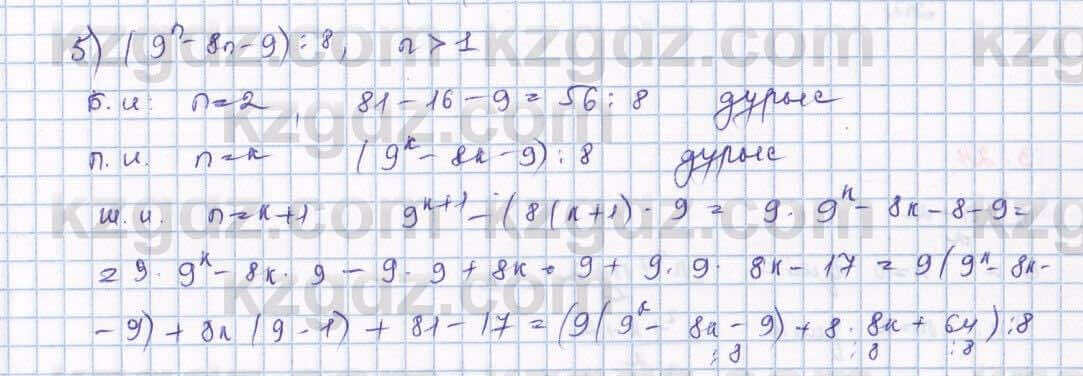 5) (9ⁿ - 8n - 9) : 8, n > 1
б.и: n = 2, 81 - 16 - 9 = 56 : 8 дұрыс
п.и. n = k (9ᵏ - 8k - 9) : 8 дұрыс
ш.и. n = k+1 9ᵏ⁺¹ - (8(k+1) - 9 = 9 · 9ᵏ - 8k - 8 - 9 =
= 9 · 9ᵏ - 8k · 9 - 9 · 9 + 8k · 9 + 9 · 9 · 8k - 17 = 9(9ᵏ - 8k -
- 9) + 8k(9 - 1) + 81 - 17 = (9(9ᵏ - 8k - 9) + 8 · 8k + 64) : 8
: 8 : 8 : 8
kzgdz.com